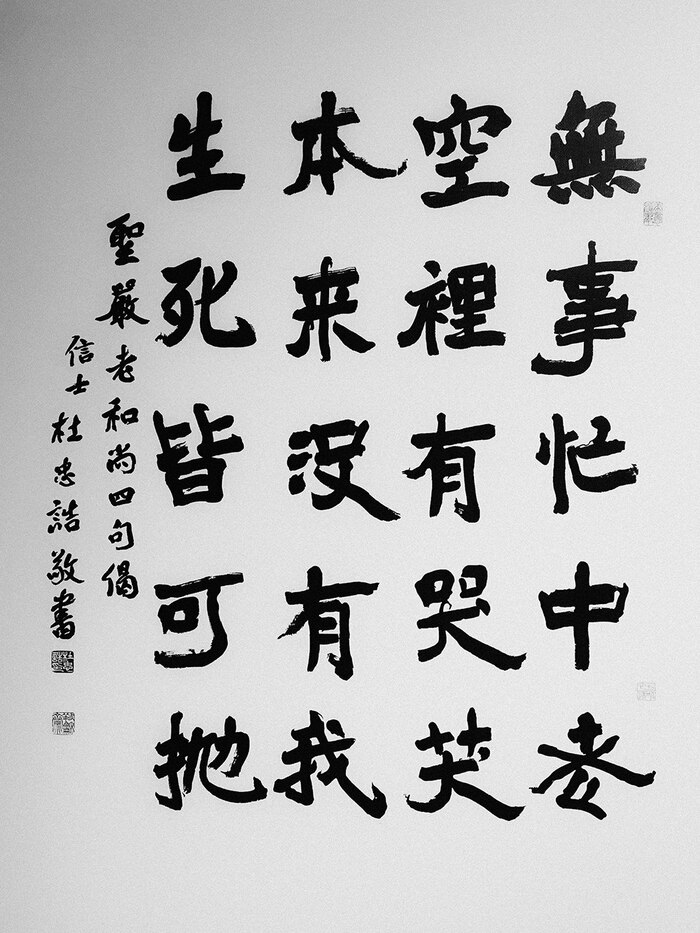 無事忙中老
空裡有哭笑
本来沒有我
生死皆可拋
聖嚴老和尚四句偈
信士杜忠誥敬書